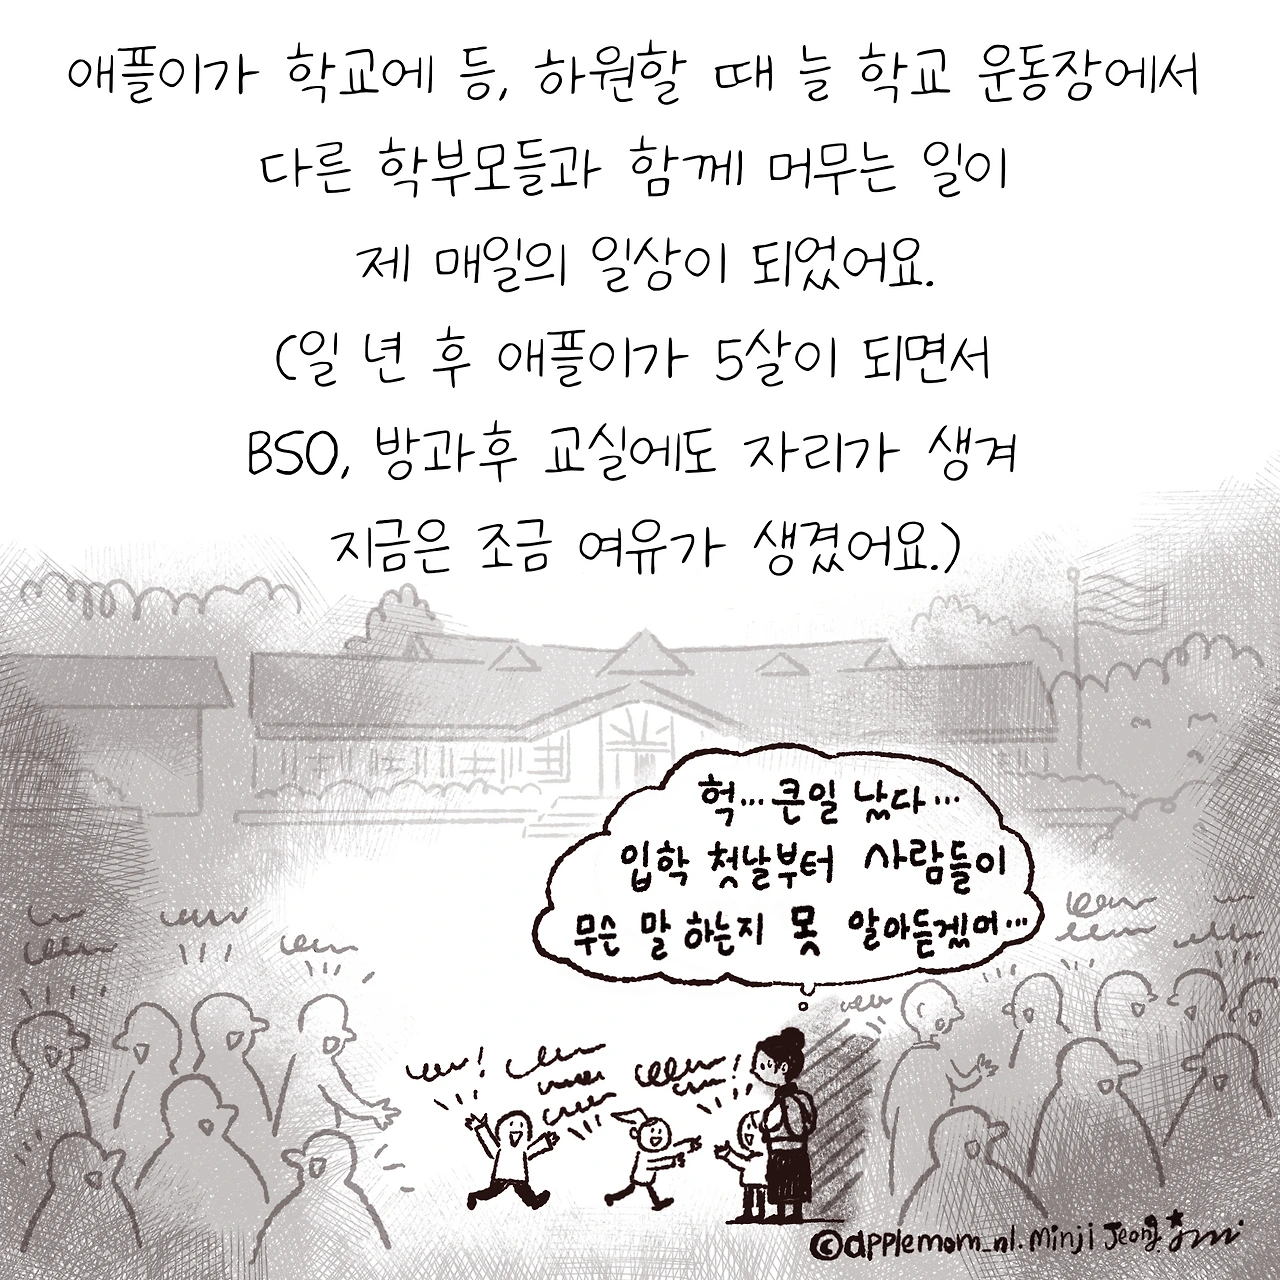 애플이가 학교에 등, 하원할 때 늘 학교 운동장에서
다른 학부모들과 함께 머무는 일이
제 매일의 일상이 되었어요.
(일 년 후 애플이가 5살이 되면서
BSO, 방과후 교실에도 자리가 생겨
지금은 조금 여유가 생겼어요.)
헉... 큰일 났다...
입학 첫날부터 사람들이
무슨 말 하는지 못 알아듣겠어...
©applemom_nl. Minji Jeong